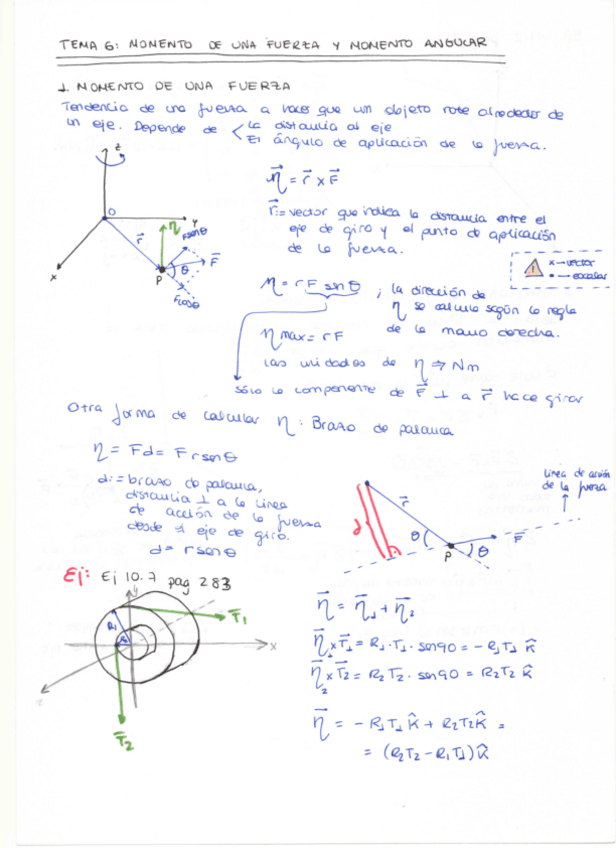 TEMA 6: MOMENTO DE UNA FUERZA Y MOMENTO ANGULAR
1. MOMENTO DE UNA FUERZA
Tendencia de una fuerza a hacer que un objeto rote alrededor de
un eje. Depende de < la distancia al eje
El ángulo de aplicación de la fuerza.
z
O
y
x
r⃗
η
F sen θ
F⃗
θ
P
F cos θ
η⃗ = r⃗ x F⃗
r⃗:= vector que indica la distancia entre el
eje de giro y el punto de aplicación
de la fuerza.
x → vector
• → escalar
η = r F sen θ ; la dirección de
η se calcula según la regla
de la mano derecha.
η max = r F
Las unidades de η ⇒ Nm
sólo la componente de F⃗ ⊥ a r⃗ hace girar
Otra forma de calcular η: Brazo de palanca
η = Fd = F r sen θ
d:= brazo de palanca,
distancia ⊥ a la línea
de acción de la fuerza
desde el eje de giro.
d = r sen θ
Línea de acción
de la fuerza
d
r⃗
θ
P
F⃗
θ
Ej: Ej 10.7 pag 283
y
R1
R2
T⃗1
x
z
T⃗2
η⃗ = η⃗1 + η⃗2
η⃗1 x T⃗1 = R1 · T1 · sen 90 = - R1 T1 k̂
η⃗2 x T⃗2 = R2 T2 · sen 90 = R2 T2 k̂
η⃗ = - R1 T1 k̂ + R2 T2 k̂ =
= (R2 T2 - R1 T1) k̂